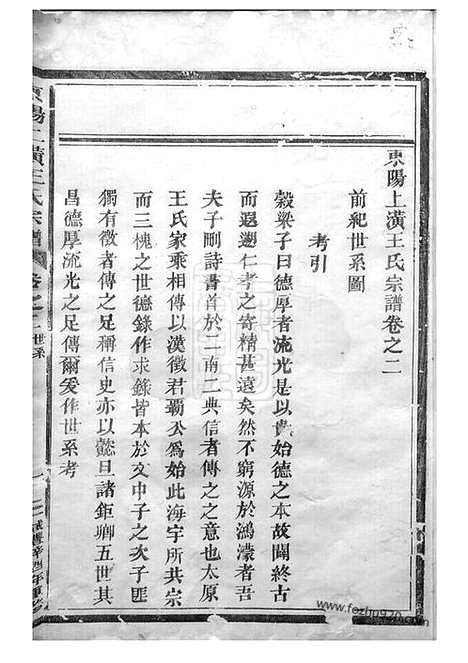 東陽上潢王氏宗譜卷之二
前紀世系圖
考引
穀梁子曰德厚者流光是以貴始德之本故闢終古
而遐遡仁孝之寄精甚遠矣然不窮源於鴻濛者吾
夫子刪詩書首於二南二典信者傳之之意也太原
王氏家乘相傳以漢徵君霸公為始此海宇所共宗
而三槐之世德錄作求錄皆本於文中子之次子匪
獨有徵者傳之足稱信史亦以懿旦諸鉅卿五世其
昌德厚流光之足傳爾爰作世系考
東陽上潢王氏宗譜
卷之二世系
www.fezhupu.com